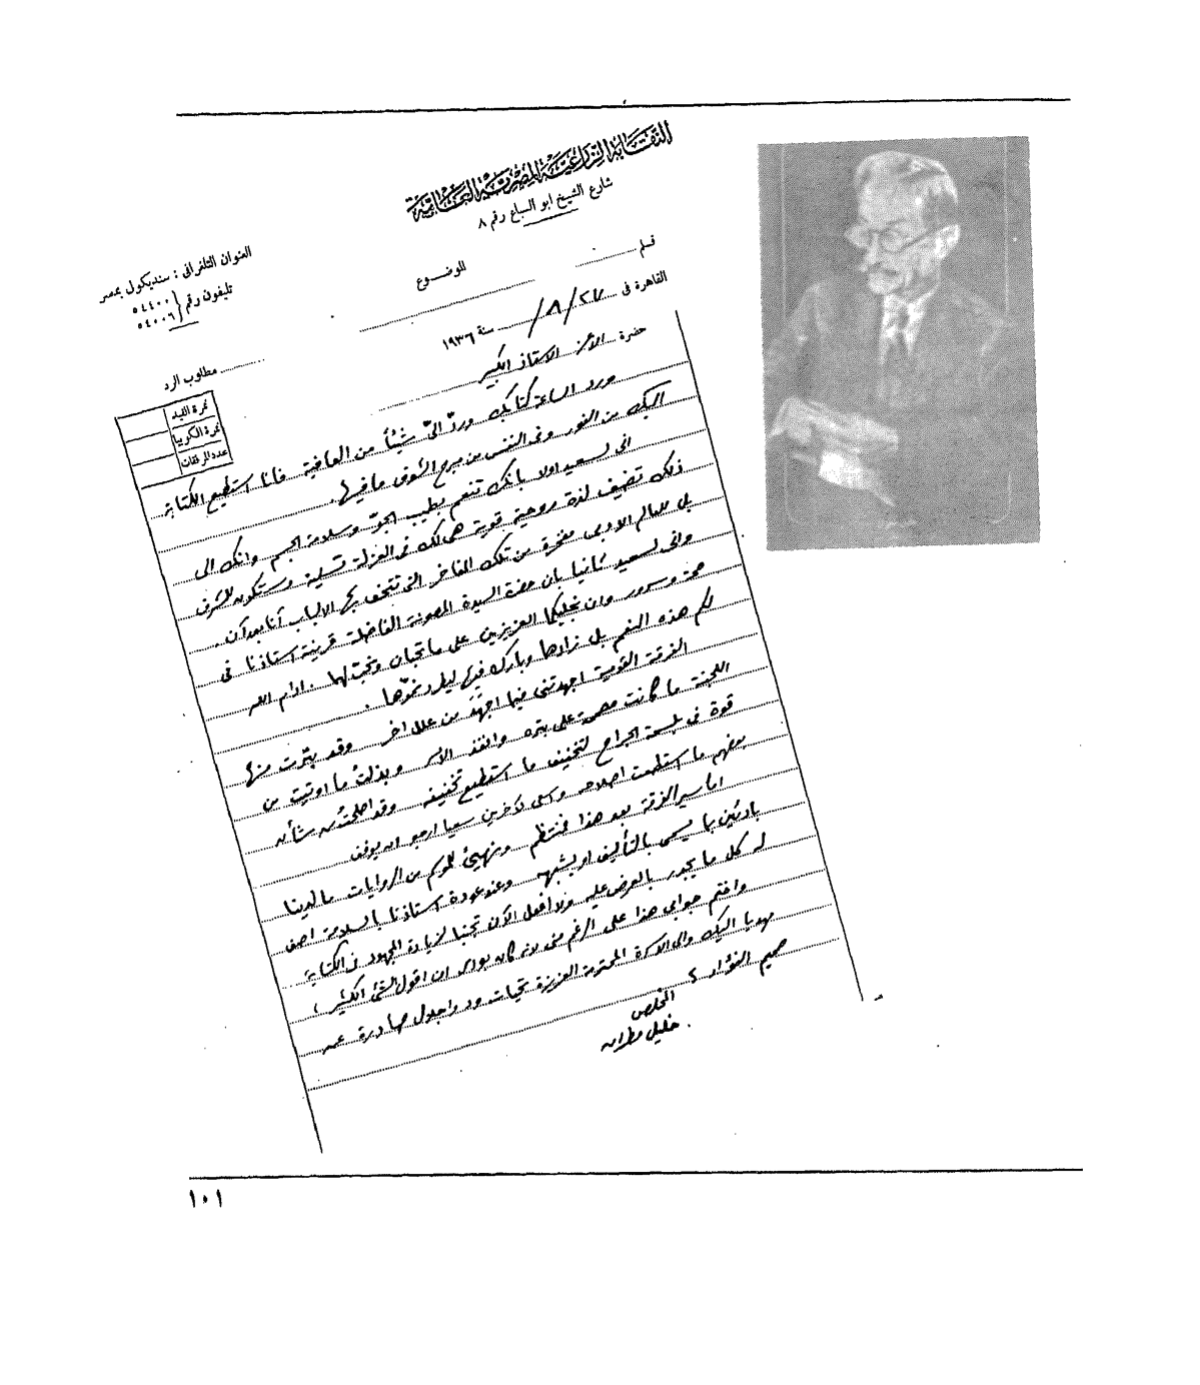 النقابة الزراعية المصرية العامة
شارع الشيخ ابو السباع رقم ٨
قلم
للموضوع
العنوان التلغرافى : سنديكول بمصر
تليفون رقم ٥٤٤٠٠
٥٤٠٠٦
القاهرة فى ٢٧/٨/ سنة ١٩٣٦
مطلوب الرد
نمرة القيد
نمرة الكوبيا
عدد المرفقات
حضرة الأعز الاستاذ الكبير
ورد الساعة كتابك وردّ اليّ شيئاً من العافية فانا استطيع الكتابة
اليك من الفور وفى النفس من مبرح الشوق ما فيها .
انى لسعيد اولا بانك تنعم بطيب الجوّ وسلامة الجسم وانك الى
ذلك تضيف لذة روحية قوية هى لك فى العزلة تسلية وستكون للشرق
بل للعالم الادبى مفخرة من تلك المفاخر التى تتحف بها الالباب آنا بعد آن .
وانى لسعيد ثانيا بان حضرة السيدة المصونة الفاضلة قرينة استاذنا فى
صحة وسرور وان نجليكما العزيزين على ما تحبان ونحب لهما . ادام الله
لكم هذه النعم بل زادها وبارك فيها ليل رنموّها .
الفرقة القومية اجهدتنى فيما اجهدَ من علل اخر وقد بترت منها
اللجنة ما كانت مصممة على بتره وانفذ الامر وبذلتُ ما اوتيت من
قوة فى بلسمة الجراح لتخفيف ما استطيع تخفيفه وقد اصلحتُ من شأن
بعضهم ما استطعت اصلاحه واسعى لآخرين سعيا ارجو ان يوفق
اما سير الفرقة بعد هذا فمنتظم ونهيئ للموسم من الروايات ما لدينا
بادئين بما يسمى بالتأليف او يشبهه وعند عودة استاذنا بالسلامة اصف
له كل ما يجدر بالعرض عليه ولا افعل الآن تجنبا لزيادة المجهود فى الكتابة
واختم جوابى هذا على الرغم منى لانه كان بودى ان اقول الشئ الكثير ،
مهديا اليك والى الاسرة المحترمة العزيزة تحيات ود واجلال صادرة عن
صميم الفؤاد
المخلص
خليل مطران
١٠١